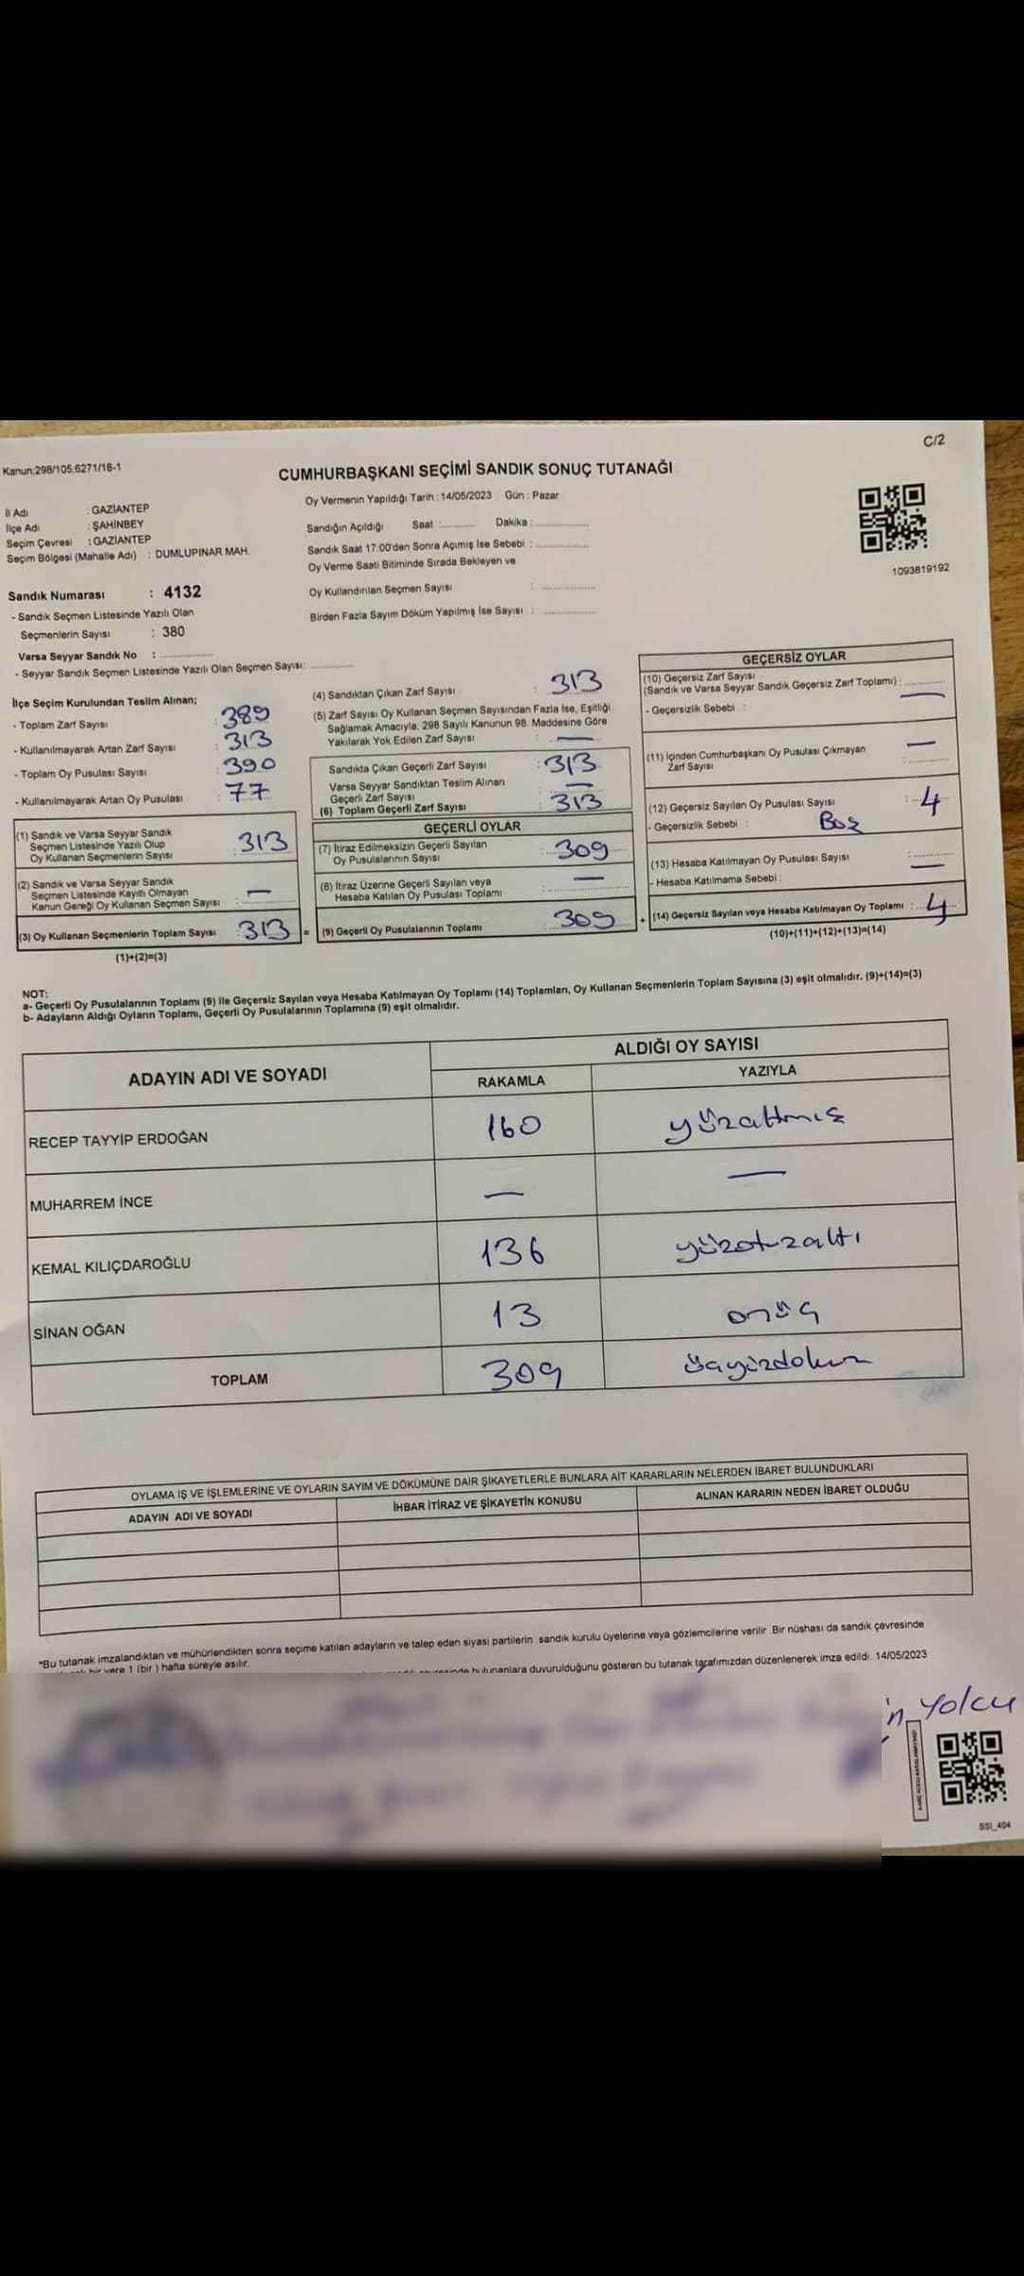 C/2
Kanun;298/105;6271/16-1
CUMHURBAŞKANI SEÇİMİ SANDIK SONUÇ TUTANAĞI
İl Adı : GAZİANTEP
İlçe Adı : ŞAHİNBEY
Seçim Çevresi : GAZİANTEP
Seçim Bölgesi (Mahalle Adı) : DUMLUPINAR MAH.
Sandık Numarası : 4132
- Sandık Seçmen Listesinde Yazılı Olan
Seçmenlerin Sayısı : 380
Varsa Seyyar Sandık No :
- Seyyar Sandık Seçmen Listesinde Yazılı Olan Seçmen Sayısı:
Oy Vermenin Yapıldığı Tarih : 14/05/2023 Gün : Pazar
Sandığın Açıldığı Saat : Dakika :
Sandık Saat 17:00'den Sonra Açımış İse Sebebi :
Oy Verme Saati Bitiminde Sırada Bekleyen ve
Oy Kullandırılan Seçmen Sayısı :
Birden Fazla Sayım Döküm Yapılmış İse Sayısı :
1093819192
İlçe Seçim Kurulundan Teslim Alınan;
- Toplam Zarf Sayısı : 389
- Kullanılmayarak Artan Zarf Sayısı : 313
- Toplam Oy Pusulası Sayısı : 390
- Kullanılmayarak Artan Oy Pusulası : 77
(1) Sandık ve Varsa Seyyar Sandık
Seçmen Listesinde Yazılı Olup
Oy Kullanan Seçmenlerin Sayısı : 313
(2) Sandık ve Varsa Seyyar Sandık
Seçmen Listesinde Kayıtlı Olmayan
Kanun Gereği Oy Kullanan Seçmen Sayısı : —
(3) Oy Kullanan Seçmenlerin Toplam Sayısı : 313 =
(1)+(2)=(3)
(4) Sandıktan Çıkan Zarf Sayısı : 313
(5) Zarf Sayısı Oy Kullanan Seçmen Sayısından Fazla İse, Eşitliği
Sağlamak Amacıyla, 298 Sayılı Kanunun 98. Maddesine Göre
Yakılarak Yok Edilen Zarf Sayısı : —
Sandıkta Çıkan Geçerli Zarf Sayısı : 313
Varsa Seyyar Sandıktan Teslim Alınan
Geçerli Zarf Sayısı : —
(6) Toplam Geçerli Zarf Sayısı : 313
GEÇERLİ OYLAR
(7) İtiraz Edilmeksizin Geçerli Sayılan
Oy Pusulalarının Sayısı : 309
(8) İtiraz Üzerine Geçerli Sayılan veya
Hesaba Katılan Oy Pusulası Toplamı : —
(9) Geçerli Oy Pusulalarının Toplamı : 309 +
GEÇERSİZ OYLAR
(10) Geçersiz Zarf Sayısı
(Sandık ve Varsa Seyyar Sandık Geçersiz Zarf Toplamı) : —
- Geçersizlik Sebebi :
(11) İçinden Cumhurbaşkanı Oy Pusulası Çıkmayan
Zarf Sayısı : —
(12) Geçersiz Sayılan Oy Pusulası Sayısı : 4
- Geçersizlik Sebebi : Boş
(13) Hesaba Katılmayan Oy Pusulası Sayısı : —
- Hesaba Katılmama Sebebi :
(14) Geçersiz Sayılan veya Hesaba Katılmayan Oy Toplamı : 4
(10)+(11)+(12)+(13)=(14)
NOT:
a- Geçerli Oy Pusulalarının Toplamı (9) ile Geçersiz Sayılan veya Hesaba Katılmayan Oy Toplamı (14) Toplamları, Oy Kullanan Seçmenlerin Toplam Sayısına (3) eşit olmalıdır. (9)+(14)=(3)
b- Adayların Aldığı Oyların Toplamı, Geçerli Oy Pusulalarının Toplamına (9) eşit olmalıdır.
ADAYIN ADI VE SOYADI
ALDIĞI OY SAYISI
RAKAMLA YAZIYLA
RECEP TAYYİP ERDOĞAN 160 yüzaltmış
MUHARREM İNCE — —
KEMAL KILIÇDAROĞLU 136 yüzotuzaltı
SİNAN OĞAN 13 onüç
TOPLAM 309 üçyüzdokuz
OYLAMA İŞ VE İŞLEMLERİNE VE OYLARIN SAYIM VE DÖKÜMÜNE DAİR ŞİKAYETLERLE BUNLARA AİT KARARLARIN NELERDEN İBARET BULUNDUKLARI
ADAYIN ADI VE SOYADI İHBAR İTİRAZ VE ŞİKAYETİN KONUSU ALINAN KARARIN NEDEN İBARET OLDUĞU
*Bu tutanak imzalandıktan ve mühürlendikten sonra seçime katılan adayların ve talep eden siyasi partilerin sandık kurulu üyelerine veya gözlemcilerine verilir. Bir nüshası da sandık çevresinde
bir yere 1 (bir) hafta süreyle asılır.
bulunanlara duyurulduğunu gösteren bu tutanak tarafımızdan düzenlenerek imza edildi. 14/05/2023
Yolcu
SSI_404